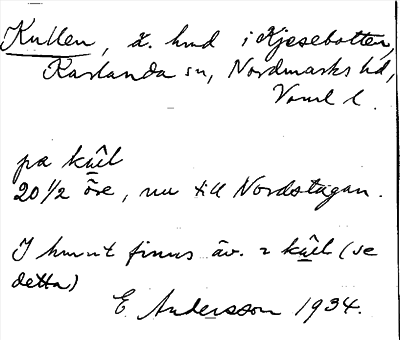 Kullen, x. hmd i Kjesebotten,
Karlanda sn, Nordmarks hd,
Vrml l.
på kûl
20 1/2 öre, nu till Nordstugan.
I hmnt finns äv. 2 kûl (se
detta)
E Andersson 1934.